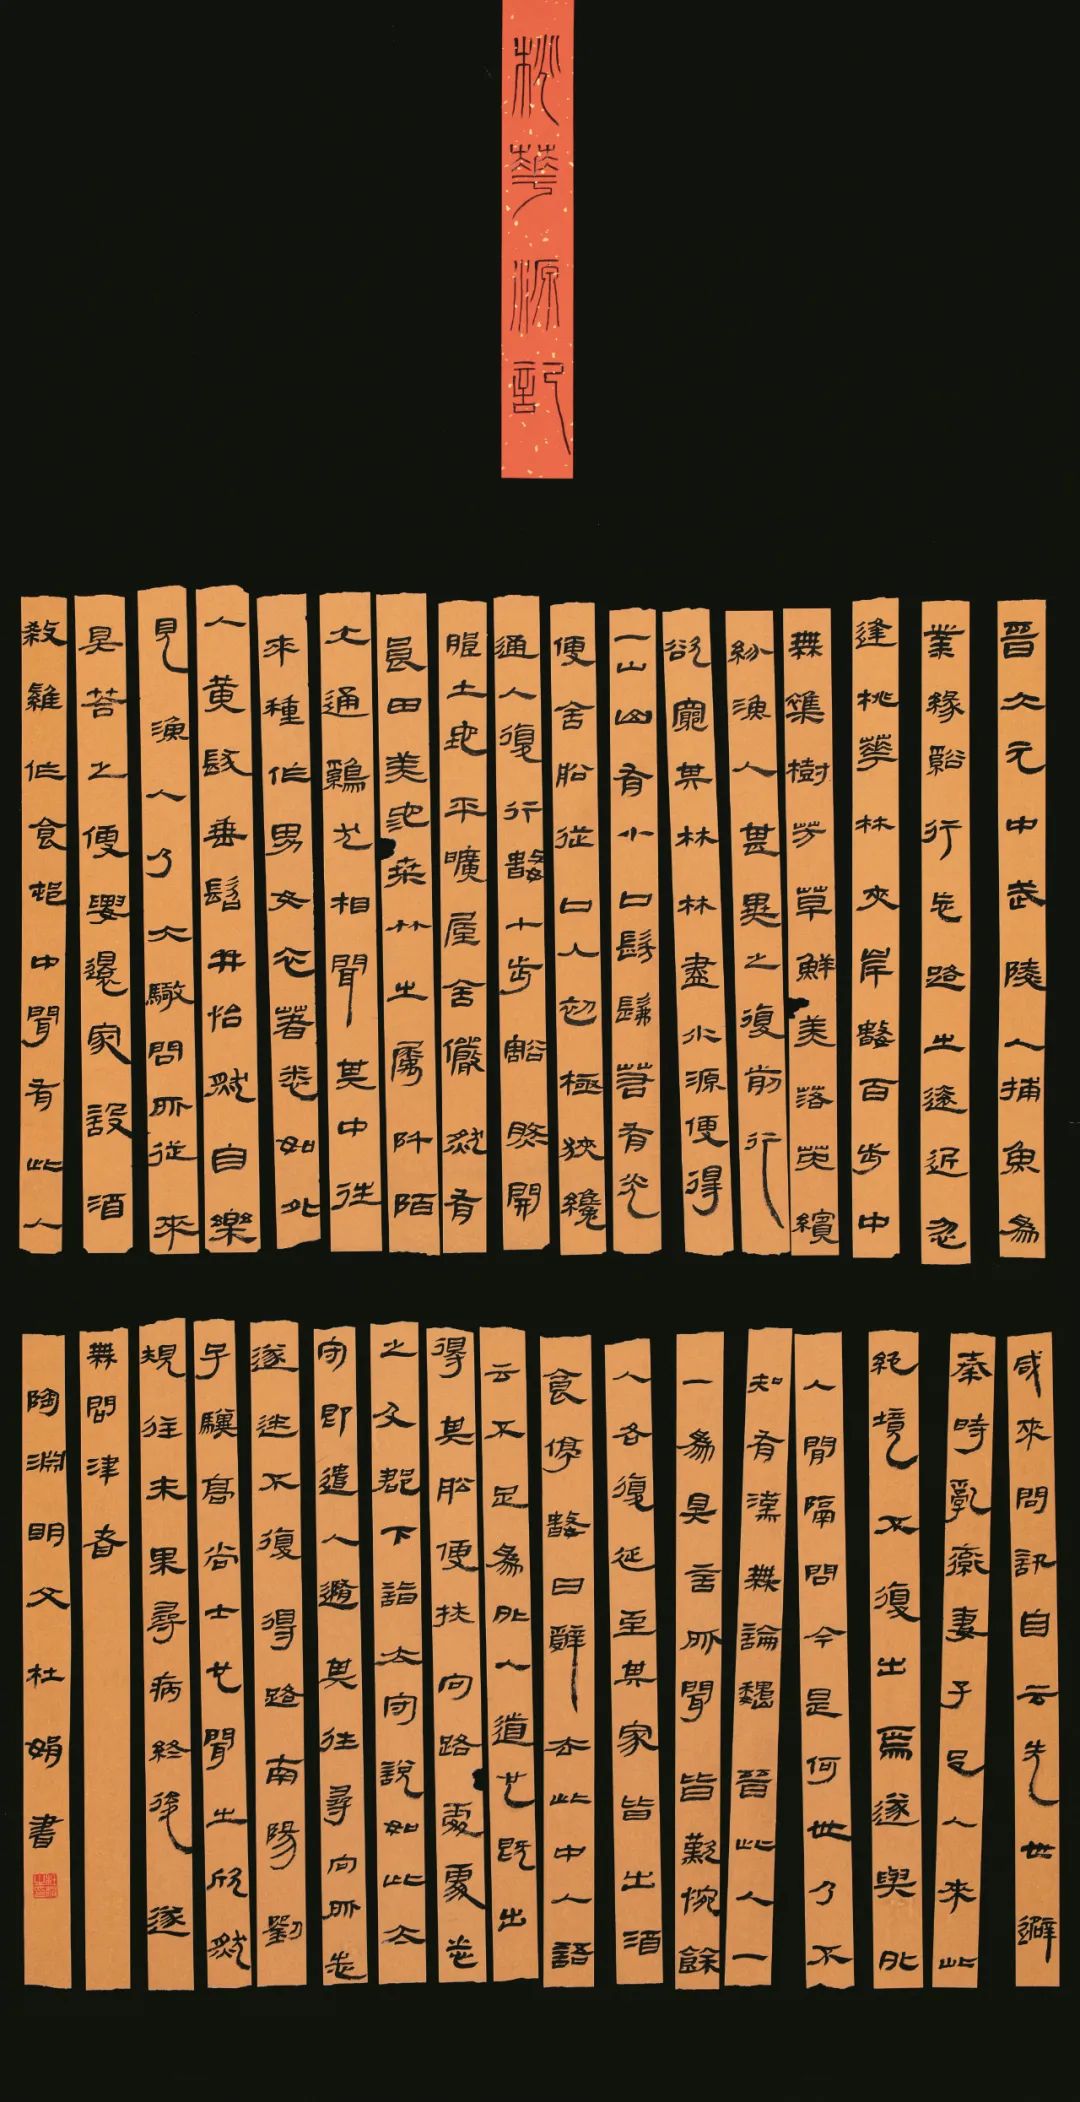 桃華源記
晉太元中武陵人捕魚為
業緣谿行忘路之遠近忽
逢桃華林夾岸數百步中
無雜樹芳草鮮美落英繽
紛漁人甚異之復前行
欲窮其林林盡水源便得
一山山有小口髣髴若有光
便舍船從口入初極狹纔
通人復行數十步豁然開
朗土地平曠屋舍儼然有
良田美池桑竹之屬阡陌
交通鷄犬相聞其中往
來種作男女衣著悉如外
人黃髮垂髫并怡然自樂
見漁人乃大驚問所從來
具答之便要還家設酒
殺雞作食邨中聞有此人
咸來問訊自云先世避
秦時亂率妻子邑人來此
絕境不復出焉遂與外
人間隔問今是何世乃不
知有漢無論魏晉此人一
一為具言所聞皆歎惋餘
人各復延至其家皆出酒
食停數日辭去此中人語
云不足為外人道也既出
得其船便扶向路處處志
之及郡下詣太守說如此太
守即遣人隨其往尋向所志
遂迷不復得路南陽劉
子驥高尚士也聞之欣然
規往未果尋病終後遂
無問津者
陶淵明文杜娟書